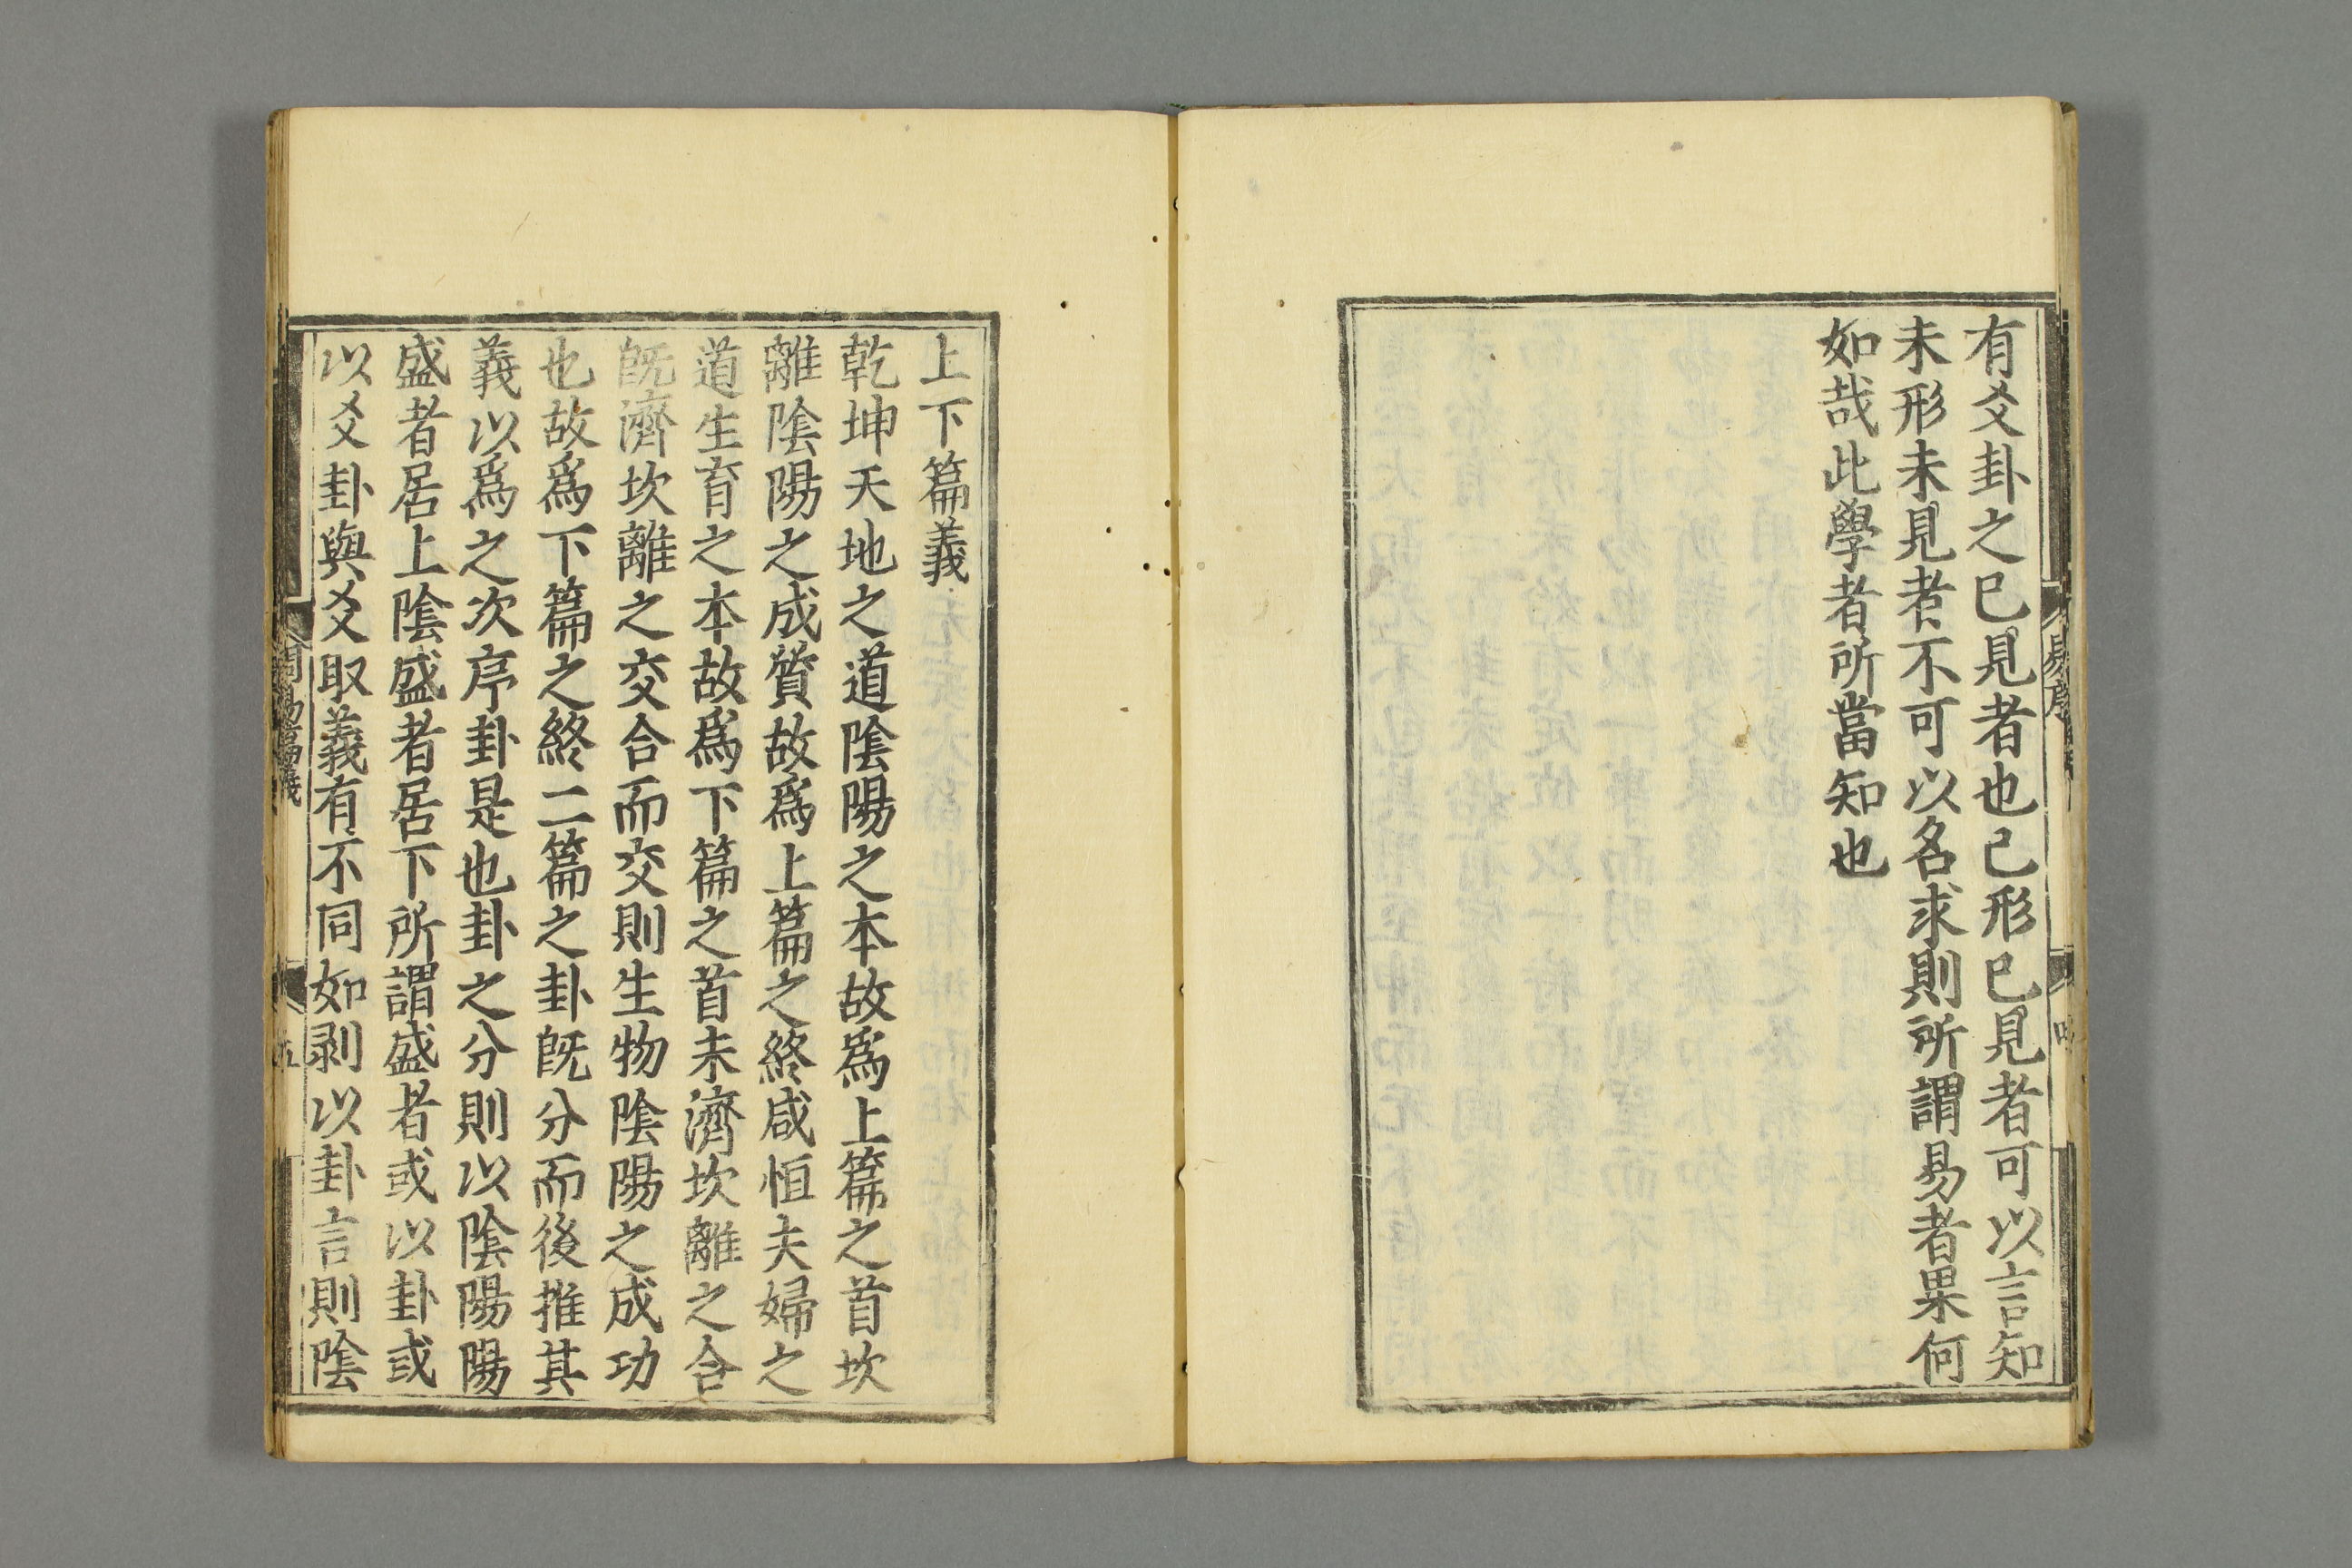 有爻卦之已見者也已形已見者可以言知
未形未見者不可以名求則所謂易者果何
如哉此學者所當知也
易序
四
上下篇義
乾坤天地之道陰陽之本故爲上篇之首坎
離陰陽之成質故爲上篇之終咸恒夫婦之
道生育之本故爲下篇之首未濟坎離之合
旣濟坎離之交合而交則生物陰陽之成功
也故爲下篇之終二篇之卦旣分而後推其
義以爲之次序卦是也卦之分則以陰陽陽
盛者居上陰盛者居下所謂盛者或以卦或
以爻卦與爻取義有不同如剥以卦言則陰
周易篇義
五